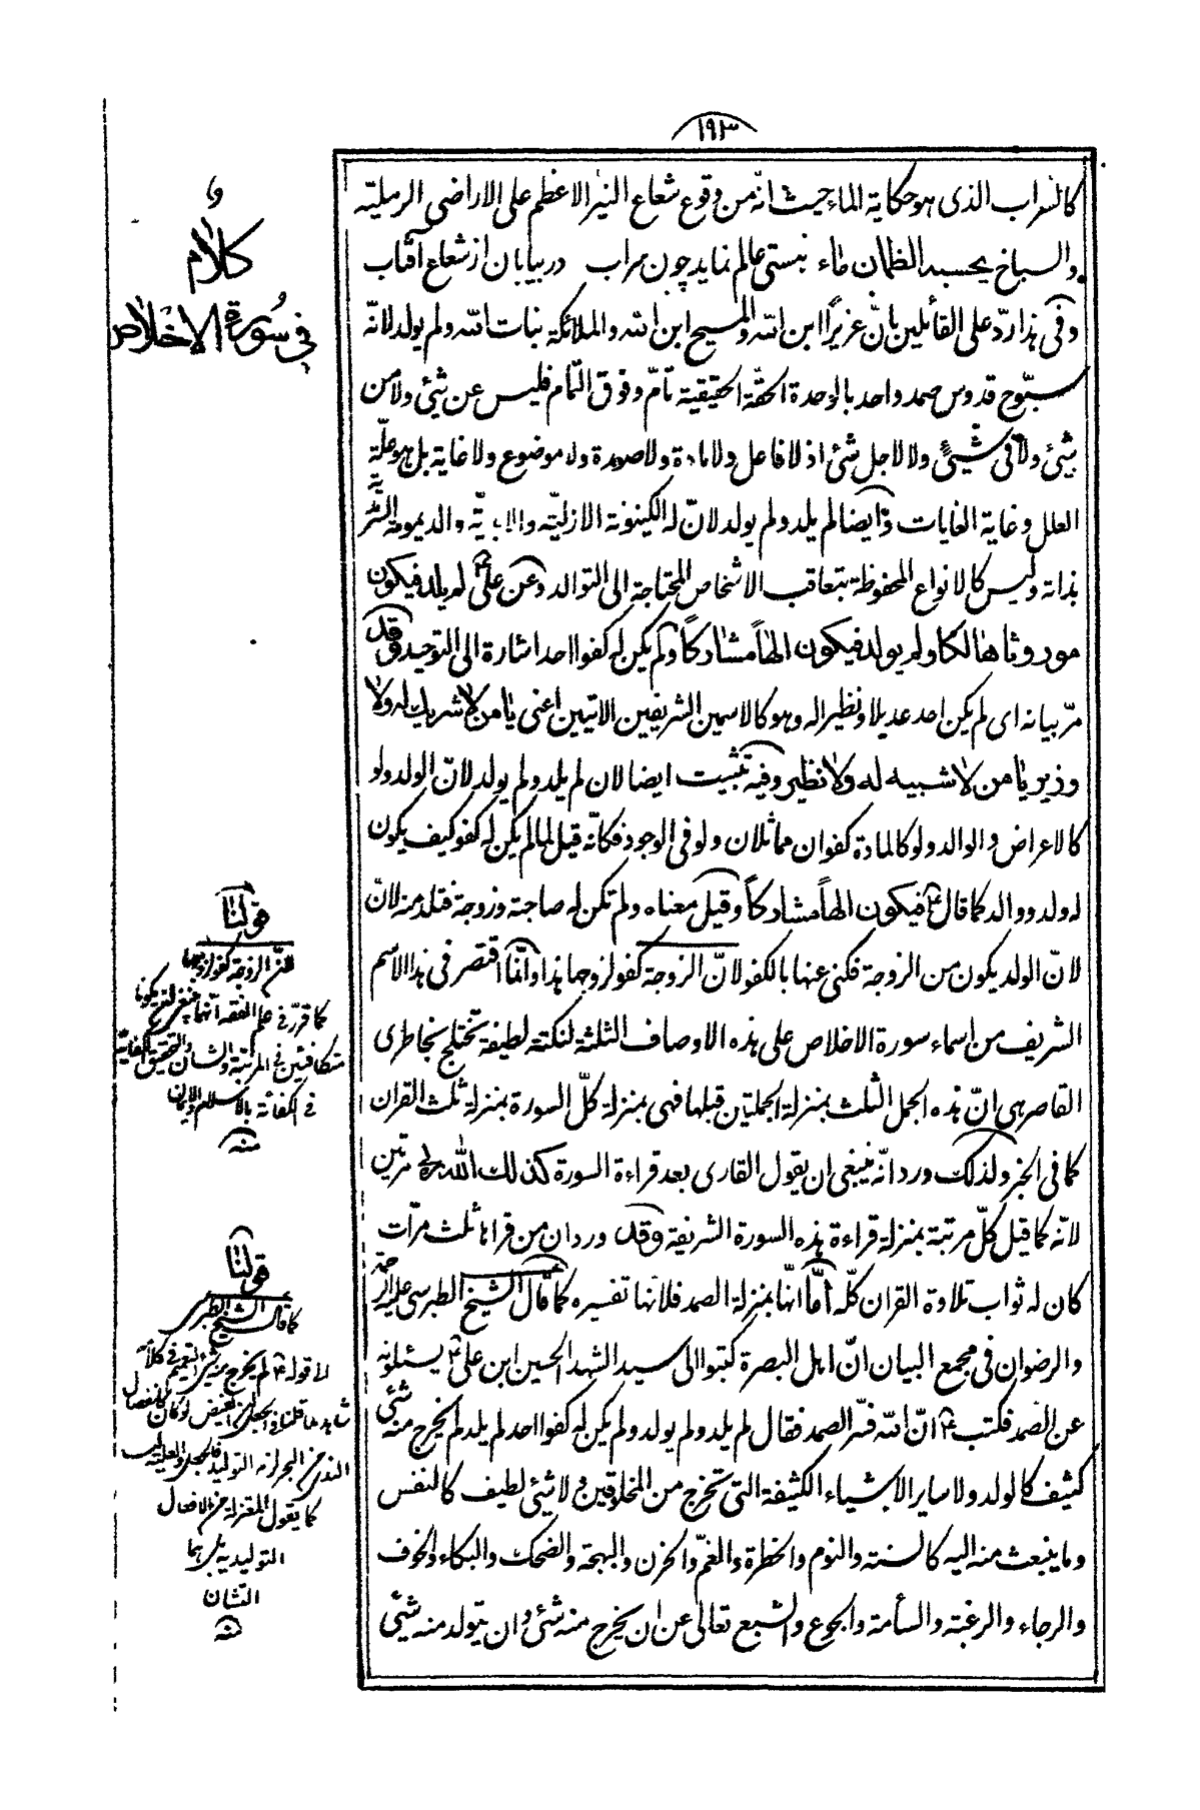 ١٩٣
كالسراب الذى هو حكاية الماء حيث انّه من وقوع شعاع النيّر الاعظم على الاراضى الرمليّه
والسباخ يحسبه الظمان ماء بنستى عالم نمايد چون سراب در بيابان از شعاع افتاب
وفى هذا ردّ على القائلين بانّ عزيرًا ابن الله والمسيح ابن الله والملائكة بنات الله ولم يولد لانّه
سبّوح قدوس صمد واحد بالوحدة الحقّة الحقيقية تامّ وفوق التّمام فليس عن شئ ولا من
شئ ولا فى شئ ولا لاجل شئ اذ لا فاعل ولا مادة ولا صورة ولا موضوع ولا غاية بل هو علّة
العلل وغاية الغايات وايضا لم يلد ولم يولد لانّ له الكينونة الازليّه والابديّة والديمومة السّرمدية
بذاته وليس كالانواع المحفوظة بتعاقب الاشخاص المحتاجة الى التوالد وعن علىّ لم يلد فيكون
موروثا هالكا ولم يولد فيكون الهاً مشاركاً ولم يكن له كفوا احد اشارة الى التوحيد وقد
مرّ بيانه اى لم يكن احد عديلا ونظيرا له وهو كالاسمين الشريفين الاتيين اعنى يا من لا شريك له ولا
وزير يا من لا شبيه له ولا نظير وفيه تثبيت ايضا لان لم يلد ولم يولد لانّ الولد ولو
كالاعراض والوالد ولو كالمادة كفوان مماثلان ولو فى الوجود فكانّه قيل لما لم يكن له كفو كيف يكون
له ولد ووالد كما قال ع فيكون الهاً مشاركاً وقيل معناه ولم تكن له صاحبة وزوجة فتلد منه لانّ
لانّ الولد يكون من الزوجة فكنى عنها بالكفو لانّ الزوجة كفو لزوجها هذا وانّما اقتصر فى هذا الاسم
الشريف من اسماء سورة الاخلاص على هذه الاوصاف الثلثة لنكتة لطيفة تختلج بخاطرى
القاصر هى انّ هذه الجمل الثلث بمنزلة الجملتين قبلها فهى بمنزلة كلّ السورة بمنزلة ثلث القران
كما فى الخبر ولذلك ورد انّه ينبغى ان يقول القارى بعد قراءة السورة كذلك الله ربى مرتين
لانّه كما قيل كلّ مرتبة بمنزلة قراءة هذه السورة الشريفة وقد ورد ان من قراها ثلث مرّات
كان له ثواب تلاوة القران كلّه امّا انّها بمنزلة الصمد فلانّها تفسيره كما قال الشيخ الطبرسى عليه الرحمة
والرضوان فى مجمع البيان انّ اهل البصرة كتبوا الى سيد الشهداء الحسين ابن على ع يسئلونه
عن الصّمد فكتب ع انّ الله فسّر الصمد فقال لم يلد ولم يولد ولم يكن له كفوا احد لم يلد لم يخرج منه شئ
كثيف كالولد ولا ساير الاشياء الكثيفة التى تخرج من المخلوقين ولا شئ لطيف كالنفس
وما ينبعث منه اليه كالسنة والنوم والخطرة والغمّ والحزن والبهجة والضحك والبكاء والخوف
والرجاء والرغبة والسأمة والجوع والشبع تعالى عن ان يخرج منه شئ وان يتولد منه شئ
كلام
فى سورة الاخلاص
قولنا
لانّ الزوجة كفو لزوجها
كما قرّر فى علم الفقه انّهما ينبغى ان يكونا
متكافئين فى المرتبة والشان والتحقيق الكفاية
فى الكفائة بالاسلام والايمان
منه
قولنا
كما قال الشيخ الطبرسى
لا قوله ع لم يخرج منه شئ
شاهد ما قلنا
التوليد
كما يقول المعتزلة من الافعال
التوليديه
الشان
منه